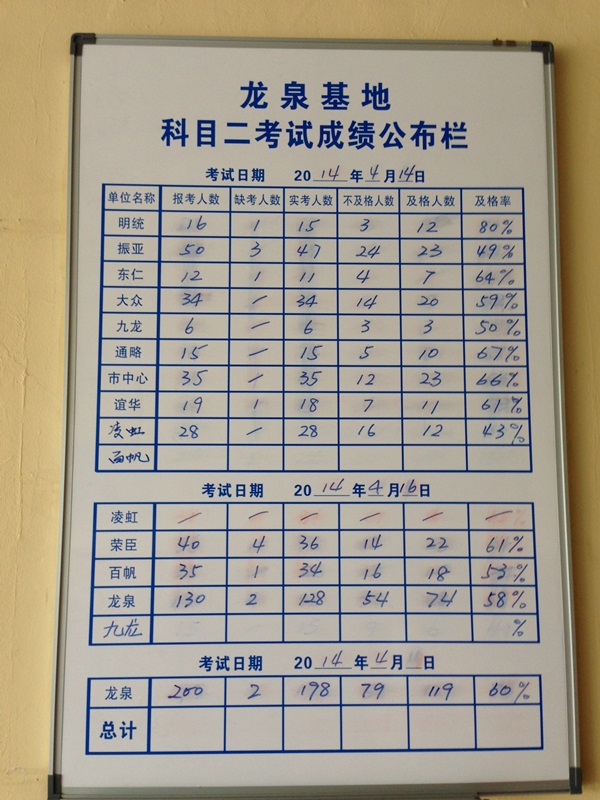 龙泉基地
科目二考试成绩公布栏
考试日期 2014年4月14日
单位名称 报考人数 缺考人数 实考人数 不及格人数 及格人数 及格率
明统 16 1 15 3 12 80%
振亚 50 3 47 24 23 49%
东仁 12 1 11 4 7 64%
大众 34 — 34 14 20 59%
九龙 6 — 6 3 3 50%
通略 15 — 15 5 10 67%
市中心 35 — 35 12 23 66%
谊华 19 1 18 7 11 61%
凌虹 28 — 28 16 12 43%
百帆
考试日期 2014年4月16日
凌虹 — — — — — —
荣臣 40 4 36 14 22 61%
百帆 35 1 34 16 18 53%
龙泉 130 2 128 54 74 58%
九龙 %
考试日期 2014年4月 日
龙泉 200 2 198 79 119 60%
总计